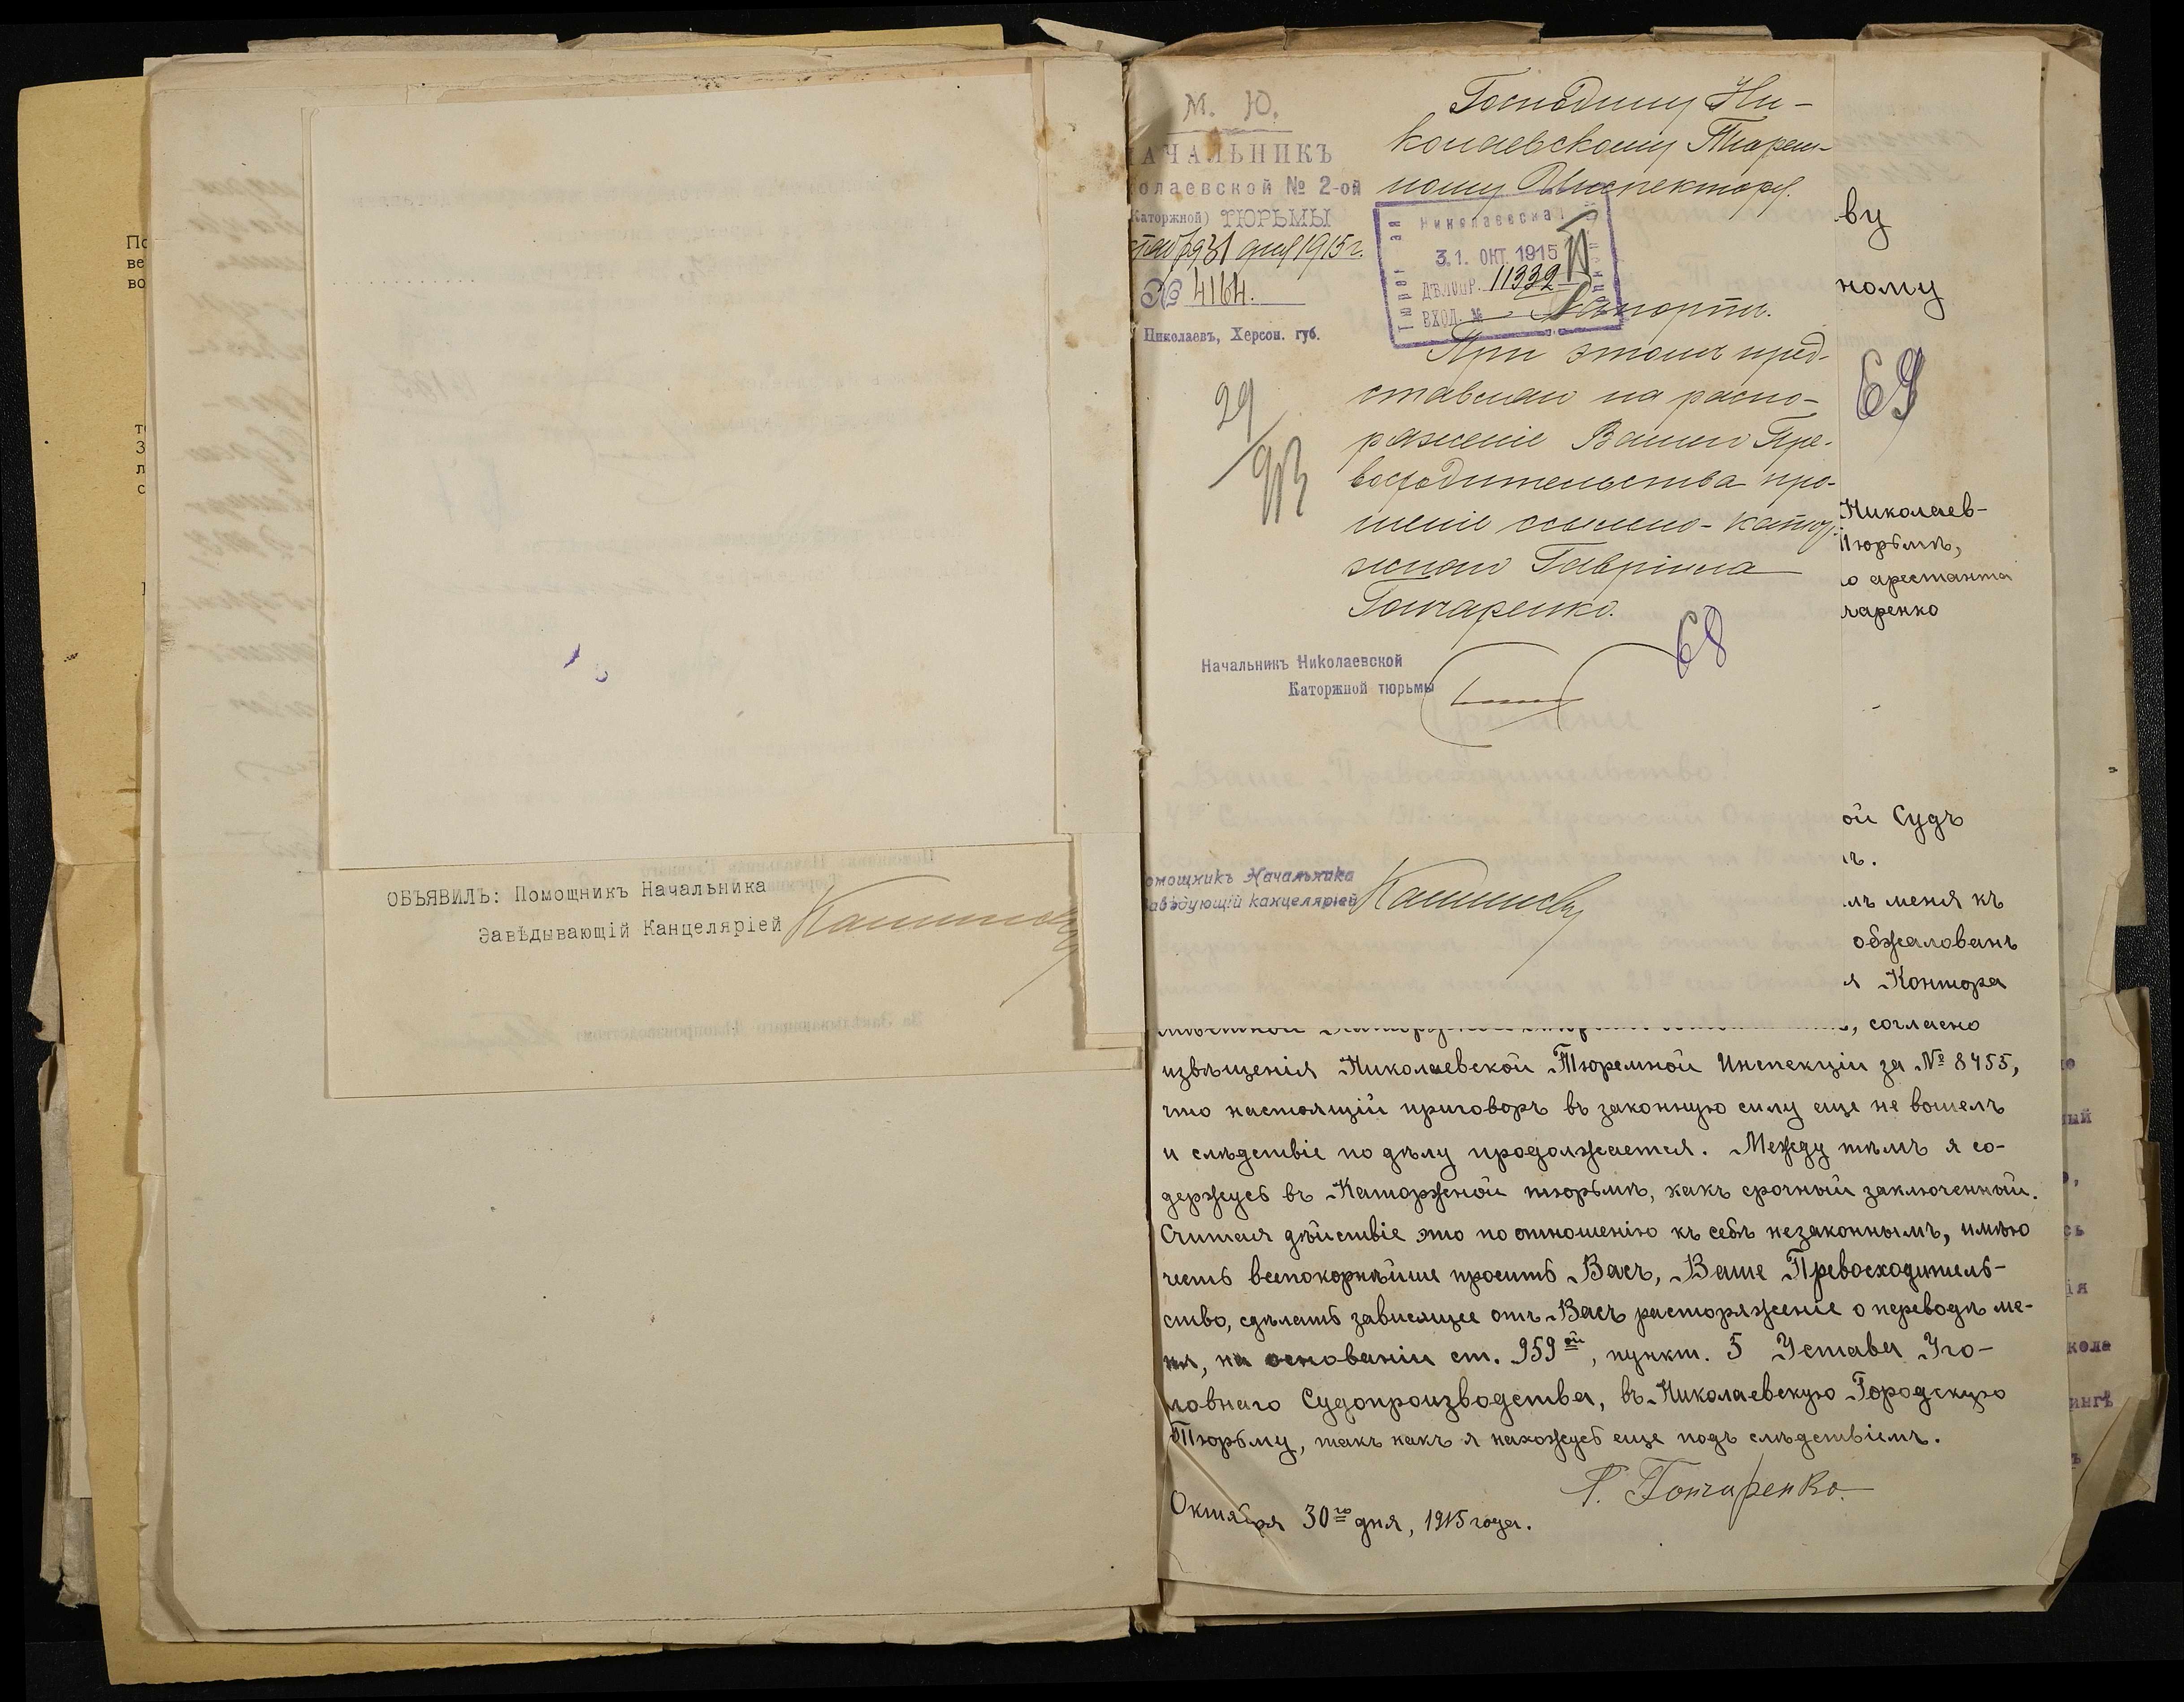 ОБЪЯВИЛЪ: Помощникъ Начальника
Завѣдывающій Канцеляріей
М. Ю.
АЧАЛЬНИКЪ
олаевской № 2-ой
Каторжной) ТЮРЬМЫ
31 дня 1915 г.
№ 4164.
Николаевъ, Херсон. губ.
Господину Ни-
колаевскому Тюрем-
ному Инспектору.
Николаевская
31. ОКТ. 1915
ДѢЛОПР. 11332
ВХОД. №
Рапортъ.
При этомъ пред-
ставляю на распо-
ряженіе Вашего Пре-
восходительства про-
шеніе ссыльно-катор-
жнаго Гавріила
Гончаренко.
29
68
Начальникъ Николаевской
Каторжной тюрьмы
омощникъ Начальника
авѣдующій канцеляріей
ву
ному
69
Николаев-
Тюрьмѣ,
о арестанта
чаренко
ой Судъ
ъ.
лъ меня къ
обжалованъ
я Контора
, согласно
извѣщенія Николаевской Тюремной Инспекціи за № 8455,
что настоящій приговоръ въ законную силу еще не вошелъ
и слѣдствіе по дѣлу продолжается. Между тѣмъ я со-
держусь въ Каторжной тюрьмѣ, какъ срочный заключенный.
Считая дѣйствіе это по отношенію къ себѣ незаконнымъ, имѣю
честь всепокорнѣйше просить Васъ, Ваше Превосходитель-
ство, сдѣлать зависящее отъ Васъ расторяженіе о переводѣ ме-
ня, на основаніи ст. 959ой, пункт. 5 Устава Уго-
ловнаго Судопроизводства, въ Николаевскую Городскую
Тюрьму, такъ какъ я нахожусь еще подъ слѣдствіемъ.
Г. Гончаренко.
Октября 30го дня, 1915 года.